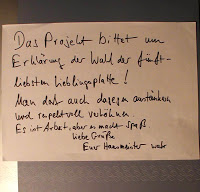 Das Projekt bittet um
Erklärung der Wahl der fünft-
liebsten Lieblingsplatte!
Man darf auch dagegen anstänkern
und respektvoll verhöhnen.
Es ist Arbeit, aber es macht Spaß
liebe Grüße
Euer Hausmeister